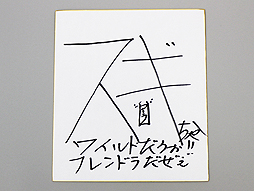 スギちゃん
ワイルドだろぉ!!
フレンドラだぜぇ